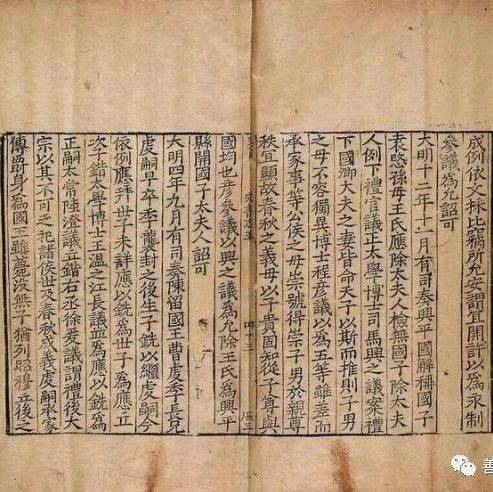 成例依文採比竊所允安謂宜開許以為永制
參議為允詔可
大明十二年十一月有司奏興平國解稱國子
袁愍孫母王氏應除太夫人檢無國子除太夫
人例下禮官議正太學博士司馬興之議案禮
下國卿大夫之妻皆命天子以斯而推則子男
之母不容獨異博士程彦議以為五等雖差而
承家事等公侯之母崇號得崇子男於親尊
秩宜顯故春秋之義母以子貴固知從子尊與
國均也彦參議以興之議為允除王氏為興平
縣開國子太夫人詔可
四十三
大明四年九月有司奏陳留國王曹虔季長兄
虔嗣早卒季襲封之後生子銑以繼虔嗣今
依例應拜世子未詳應以銑為世子為應立
次子鍇太學博士王溫之江長議並為應以銑為
正嗣太常陸澄議立鍇右丞徐爰議謂禮後大
宗以其不可乏祀諸侯世及春秋成義虔嗣承家
傳爵身為國王雖薨沒無子猶列昭穆立後之
善